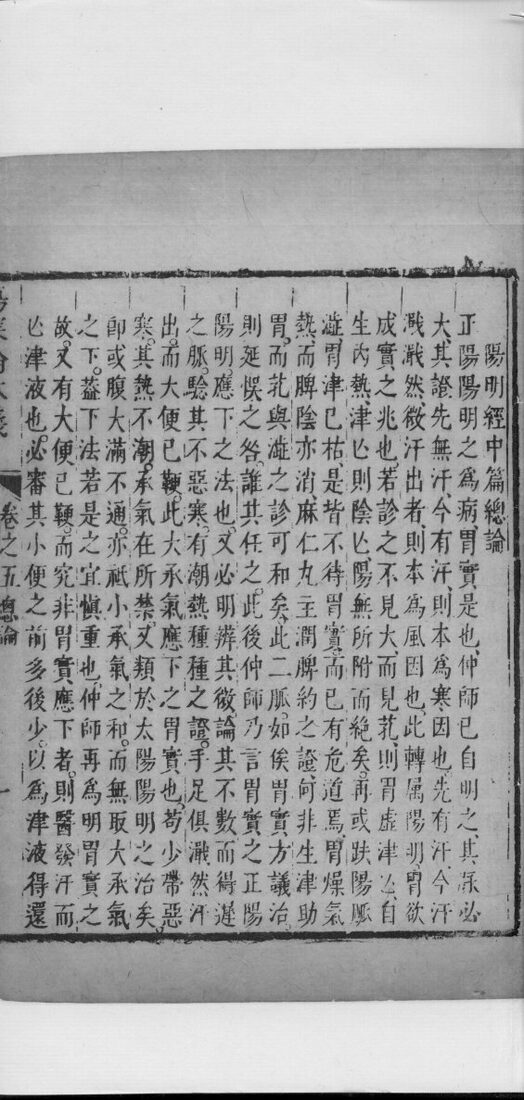 陽明經中篇總論
正陽陽明之為病胃實是也仲師已自明之其脈必
大其證先無汗今有汗則本為寒因也先有汗今汗
濈濈然微汗出者則本為風因也此轉属陽明胃欲
成實之兆也若診之不見大而見芤則胃虛津亾自
生內熱津亾則陰亾陽無所附而絶矣再或趺陽脈
澁胃津已枯是皆不待胃實而已有危道焉胃燥氣
熱而脾陰亦消麻仁丸主潤脾約之證何非生津助
胃而芤與澁之診可和矣此二脈如俟胃實方議治
則延悞之咎誰其任之此後仲師乃言胃實之正陽
陽明應下之法也又必明辨其微論其不數而得遲
之脈驗其不惡寒有潮熱種種之證手足俱濈然汗
出而大便已鞕此大承氣應下之胃實也苟少帶惡
寒其熱不潮承氣在所禁又類於太陽陽明之治矣
卽或腹大滿不通亦祗小承氣之和而無取大承氣
之下葢下法若是之宜慎重也仲師再為明胃實之
故又有大便已鞕而究非胃實應下者則醫發汗而
亾津液也必審其小便之前多後少以為津液得還
卷之五總論
一